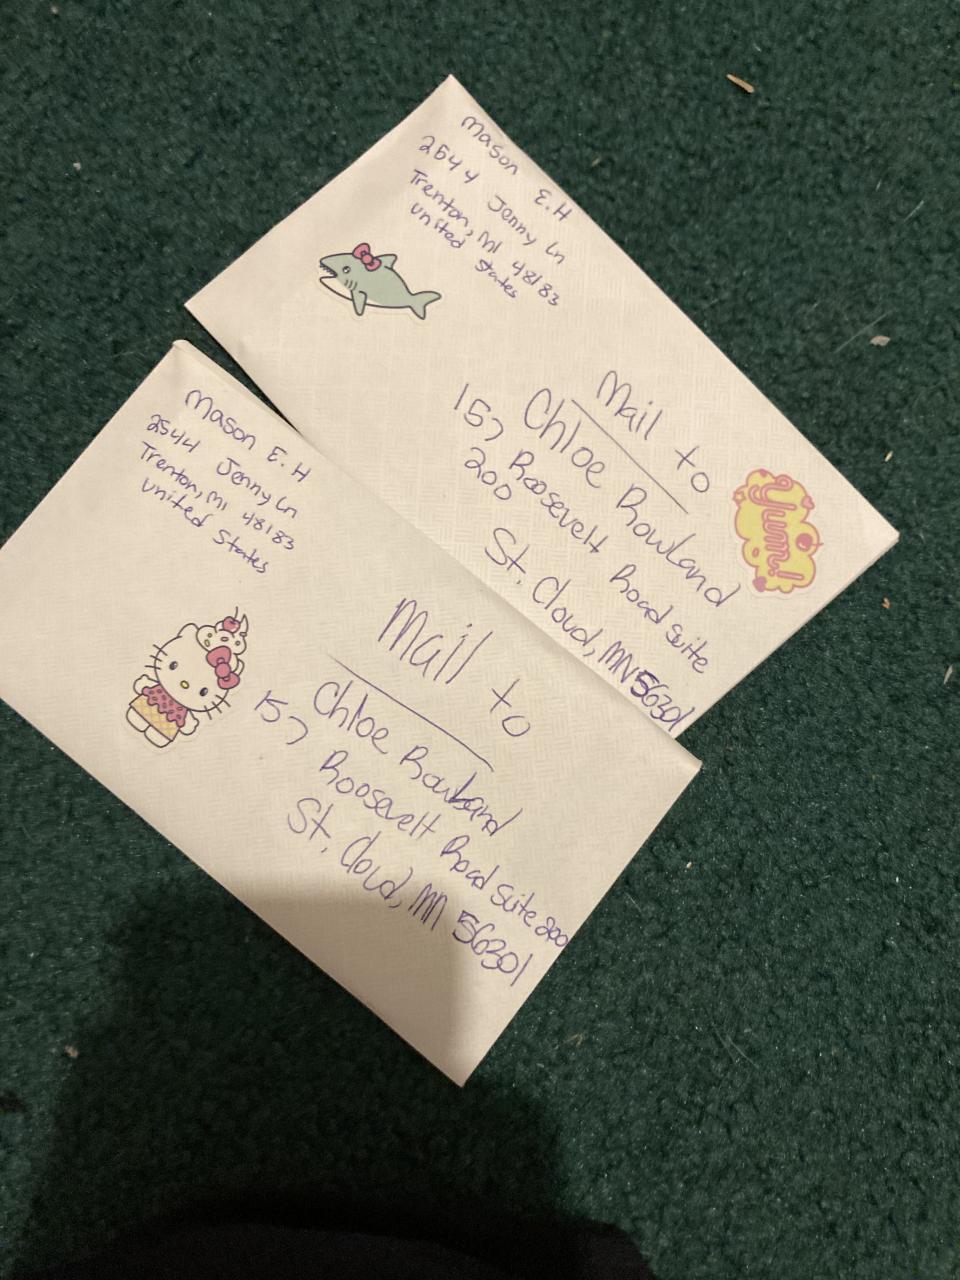 Mason E.H
2544 Jenny Ln
Trenton, MI 48183
United States
Mail to
Chloe Rowland
157 Roosevelt Road Suite
200
St. Cloud, MN 56301
Yumm!
Mason E. H
2544 Jenny Ln
Trenton, MI 48183
United States
Mail to
Chloe Rowland
157 Roosevelt Road Suite 200
St. Cloud, MN 56301